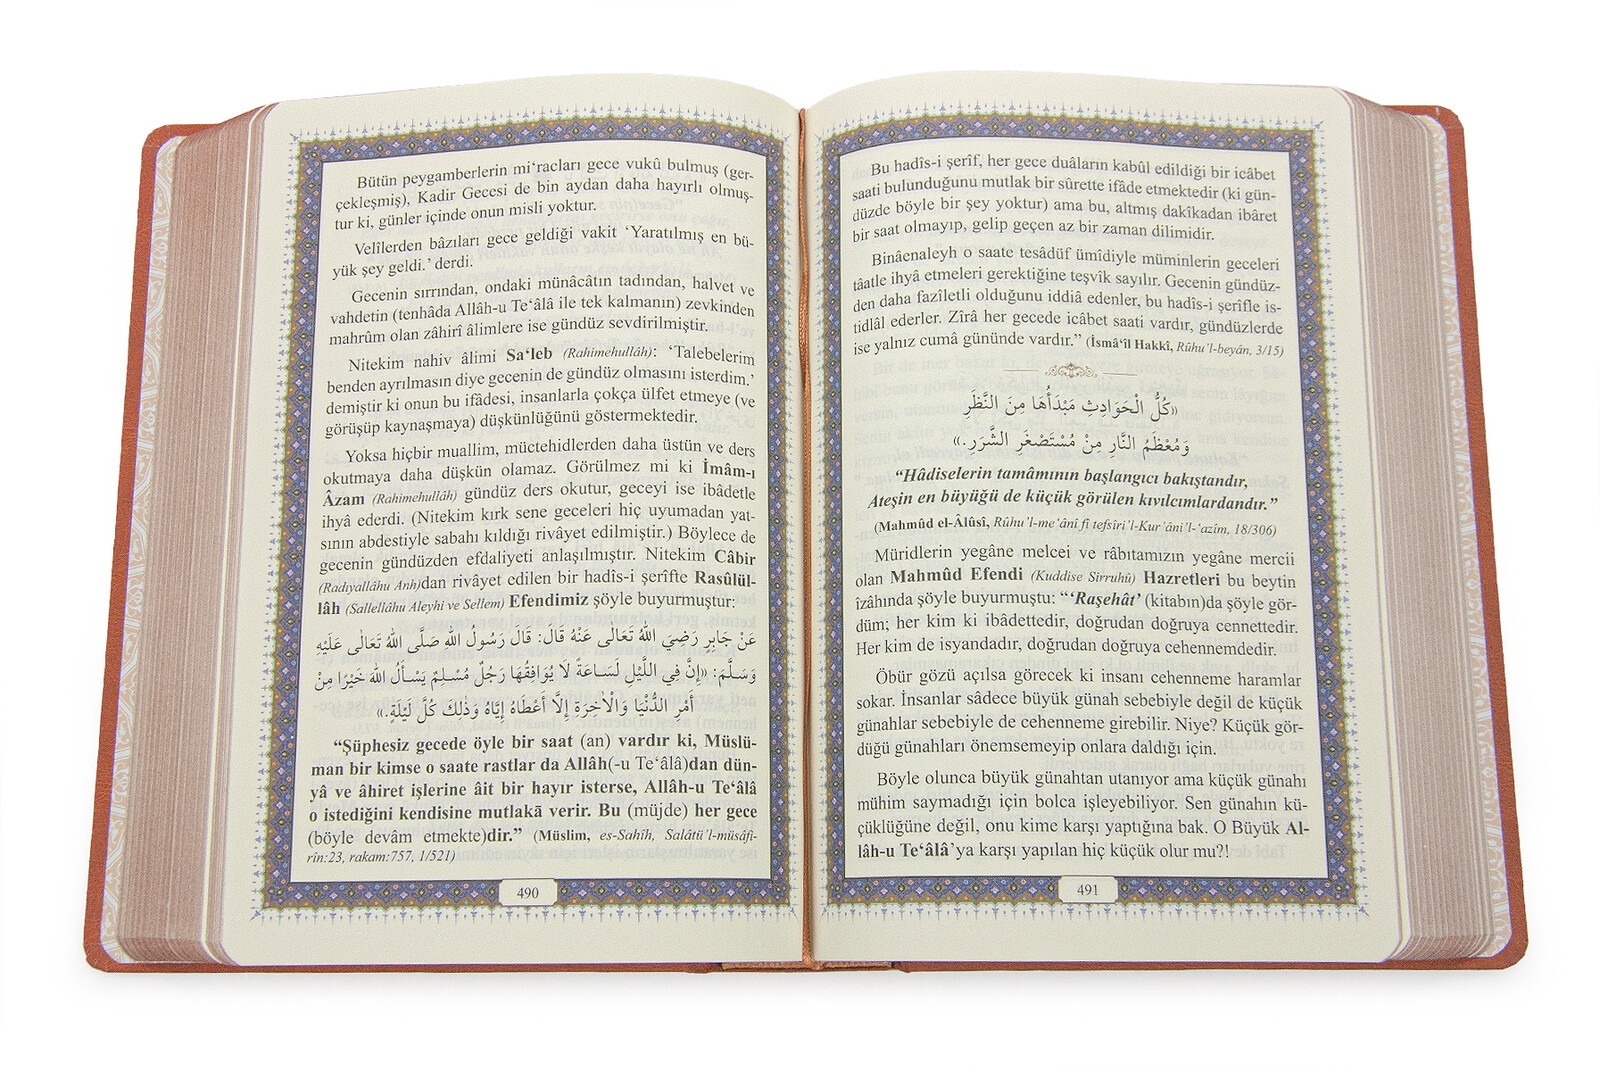 Bütün peygamberlerin mi‘racları gece vukû bulmuş (ger-
çekleşmiş), Kadir Gecesi de bin aydan daha hayırlı olmuş-
tur ki, günler içinde onun misli yoktur.
Velîlerden bâzıları gece geldiği vakit ‘Yaratılmış en bü-
yük şey geldi.’ derdi.
Gecenin sırrından, ondaki münâcâtın tadından, halvet ve
vahdetin (tenhâda Allâh-u Te‘âlâ ile tek kalmanın) zevkinden
mahrûm olan zâhirî âlimlere ise gündüz sevdirilmiştir.
Nitekim nahiv âlimi Sa‘leb (Rahimehullâh): ‘Talebelerim
benden ayrılmasın diye gecenin de gündüz olmasını isterdim.’
demiştir ki onun bu ifâdesi, insanlarla çokça ülfet etmeye (ve
görüşüp kaynaşmaya) düşkünlüğünü göstermektedir.
Yoksa hiçbir muallim, müctehidlerden daha üstün ve ders
okutmaya daha düşkün olamaz. Görülmez mi ki İmâm-ı
Âzam (Rahimehullâh) gündüz ders okutur, geceyi ise ibâdetle
ihyâ ederdi. (Nitekim kırk sene geceleri hiç uyumadan yat-
sının abdestiyle sabahı kıldığı rivâyet edilmiştir.) Böylece de
gecenin gündüzden efdaliyeti anlaşılmıştır. Nitekim Câbir
(Radıyallâhu Anh)dan rivâyet edilen bir hadîs-i şerîfte Rasûlül-
lâh (Sallellâhu Aleyhi ve Sellem) Efendimiz şöyle buyurmuştur:
عَنْ جَابِرٍ رَضِيَ اللهُ تَعَالَى عَنْهُ قَالَ: قَالَ رَسُولُ اللهِ صَلَّى اللهُ تَعَالَى عَلَيْهِ
وَسَلَّمَ: «إِنَّ فِي اللَّيْلِ لَسَاعَةً لَا يُوَافِقُهَا رَجُلٌ مُسْلِمٌ يَسْأَلُ اللهَ خَيْرًا مِنْ
أَمْرِ الدُّنْيَا وَالْاٰخِرَةِ إِلَّا أَعْطَاهُ إِيَّاهُ وَذٰلِكَ كُلَّ لَيْلَةٍ.»
“Şüphesiz gecede öyle bir saat (an) vardır ki, Müslü-
man bir kimse o saate rastlar da Allâh(-u Te‘âlâ)dan dün-
yâ ve âhiret işlerine âit bir hayır isterse, Allâh-u Te‘âlâ
o istediğini kendisine mutlakā verir. Bu (müjde) her gece
(böyle devâm etmekte)dir.” (Müslim, es-Sahîh, Salâtü’l-müsâfi-
rîn:23, rakam:757, 1/521)
490
Bu hadîs-i şerîf, her gece duâların kabûl edildiği bir icâbet
saati bulunduğunu mutlak bir sûrette ifâde etmektedir (ki gün-
düzde böyle bir şey yoktur) ama bu, altmış dakîkadan ibâret
bir saat olmayıp, gelip geçen az bir zaman dilimidir.
Binâenaleyh o saate tesâdüf ümîdiyle müminlerin geceleri
tâatle ihyâ etmeleri gerektiğine teşvîk sayılır. Gecenin gündüz-
den daha fazîletli olduğunu iddiâ edenler, bu hadîs-i şerîfle is-
tidlâl ederler. Zîrâ her gecede icâbet saati vardır, gündüzlerde
ise yalnız cumâ gününde vardır.” (İsmâ‘îl Hakkî, Rûhu’l-beyân, 3/15)
«كُلُّ الْحَوَادِثِ مَبْدَأُهَا مِنَ النَّظَرِ
وَمُعْظَمُ النَّارِ مِنْ مُسْتَصْغَرِ الشَّرَرِ.»
“Hâdiselerin tamâmının başlangıcı bakıştandır,
Ateşin en büyüğü de küçük görülen kıvılcımlardandır.”
(Mahmûd el-Âlûsî, Rûhu’l-me‘ânî fî tefsîri’l-Kur’âni’l-‘azîm, 18/306)
Müridlerin yegâne melcei ve râbıtamızın yegâne mercii
olan Mahmûd Efendi (Kuddise Sirruhû) Hazretleri bu beytin
îzâhında şöyle buyurmuştu: “‘Raşehât’ (kitabın)da şöyle gör-
düm; her kim ki ibâdettedir, doğrudan doğruya cennettedir.
Her kim de isyandadır, doğrudan doğruya cehennemdedir.
Öbür gözü açılsa görecek ki insanı cehenneme haramlar
sokar. İnsanlar sâdece büyük günah sebebiyle değil de küçük
günahlar sebebiyle de cehenneme girebilir. Niye? Küçük gör-
düğü günahları önemsemeyip onlara daldığı için.
Böyle olunca büyük günahtan utanıyor ama küçük günahı
mühim saymadığı için bolca işleyebiliyor. Sen günahın kü-
çüklüğüne değil, onu kime karşı yaptığına bak. O Büyük Al-
lâh-u Te‘âlâ’ya karşı yapılan hiç küçük olur mu?!
491